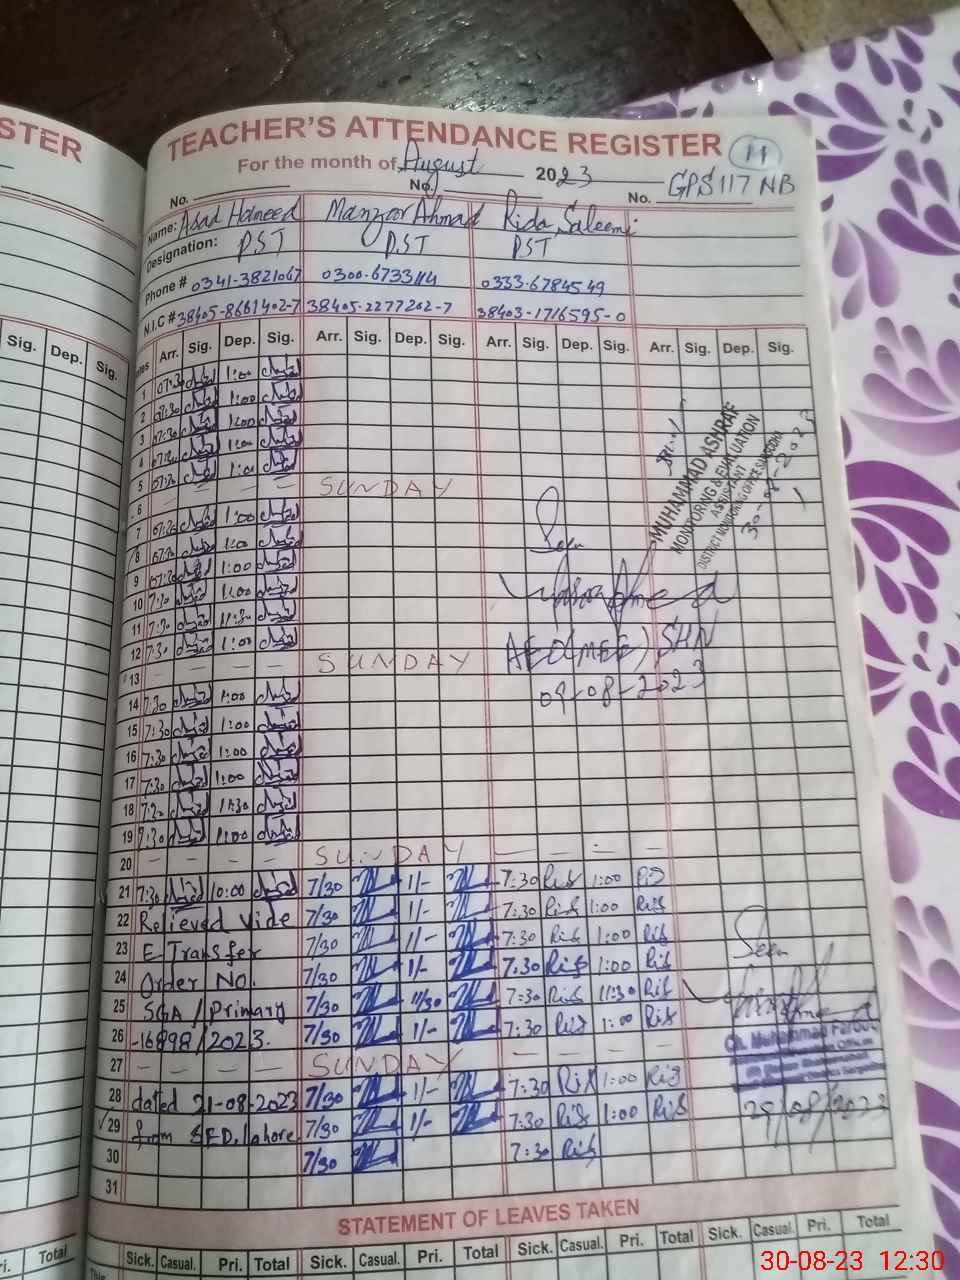 STER
TEACHER'S ATTENDANCE REGISTER
11
For the month of August 2023
GPS 117 NB
No. No. No.
Name: Asad Hameed Manzoor Ahmad Rida Saleemi
Designation: PST PST PST
Phone # 0341-3821067 0300-6733114 0333-6784549
N.I.C # 38405-8661402-7 38405-2277202-7 38403-1716595-0
Sig. Dep. Sig.
Arr. Sig. Dep. Sig. Arr. Sig. Dep. Sig. Arr. Sig. Dep. Sig. Arr. Sig. Dep. Sig.
1 07:30 1:00
2 07:30 1:00
3 07:30 1:00
4 07:30 1:00
5 07:30 1:00
6 SUNDAY
7 07:30 1:00
8 07:30 1:00
9 07:30 1:00
10 7:30 1:00
11 7:30 11:30
12 7:30 1:00
13 SUNDAY
14 7:30 1:00
15 7:30 1:00
16 7:30 1:00
17 7:30 1:00
18 7:30 11:30
19 7:30 1:00
20 SUNDAY
21 7:30 10:00 7/30 1/- 7:30 Rid 1:00 Rid
22 Relieved Vide 7/30 1/- 7:30 Rid 1:00 Rid
23 E Transfer 7/30 1/- 7:30 Rid 1:00 Rid
24 Order No. 7/30 1/- 7:30 Rid 1:00 Rid
25 SGA/Primary 7/30 11/30 7:30 Rid 11:30 Rid
26 -16898/2023. 7/30 1/- 7:30 Rid 1:00 Rid
27 SUNDAY
28 dated 21-08-2023 7/30 1/- 7:30 Rid 1:00 Rid
29 from SED, Lahore 7/30 1/- 7:30 Rid 1:00 Rid
30 7/30 7:30 Rid
31
MUHAMMAD ASHRAF
MONITORING & EVALUATION
ASSISTANT
DISTRICT MONITORING OFFICE SARGODHA
30-08-2023
Seen
AEO(MEE) SHN
09-08-2023
Seen
Ch. Muhammad Farooq
29/08/2023
STATEMENT OF LEAVES TAKEN
Total Sick. Casual. Pri. Total Sick. Casual. Pri. Total Sick. Casual. Pri. Total Sick. Casual. Pri. Total
30-08-23 12:30